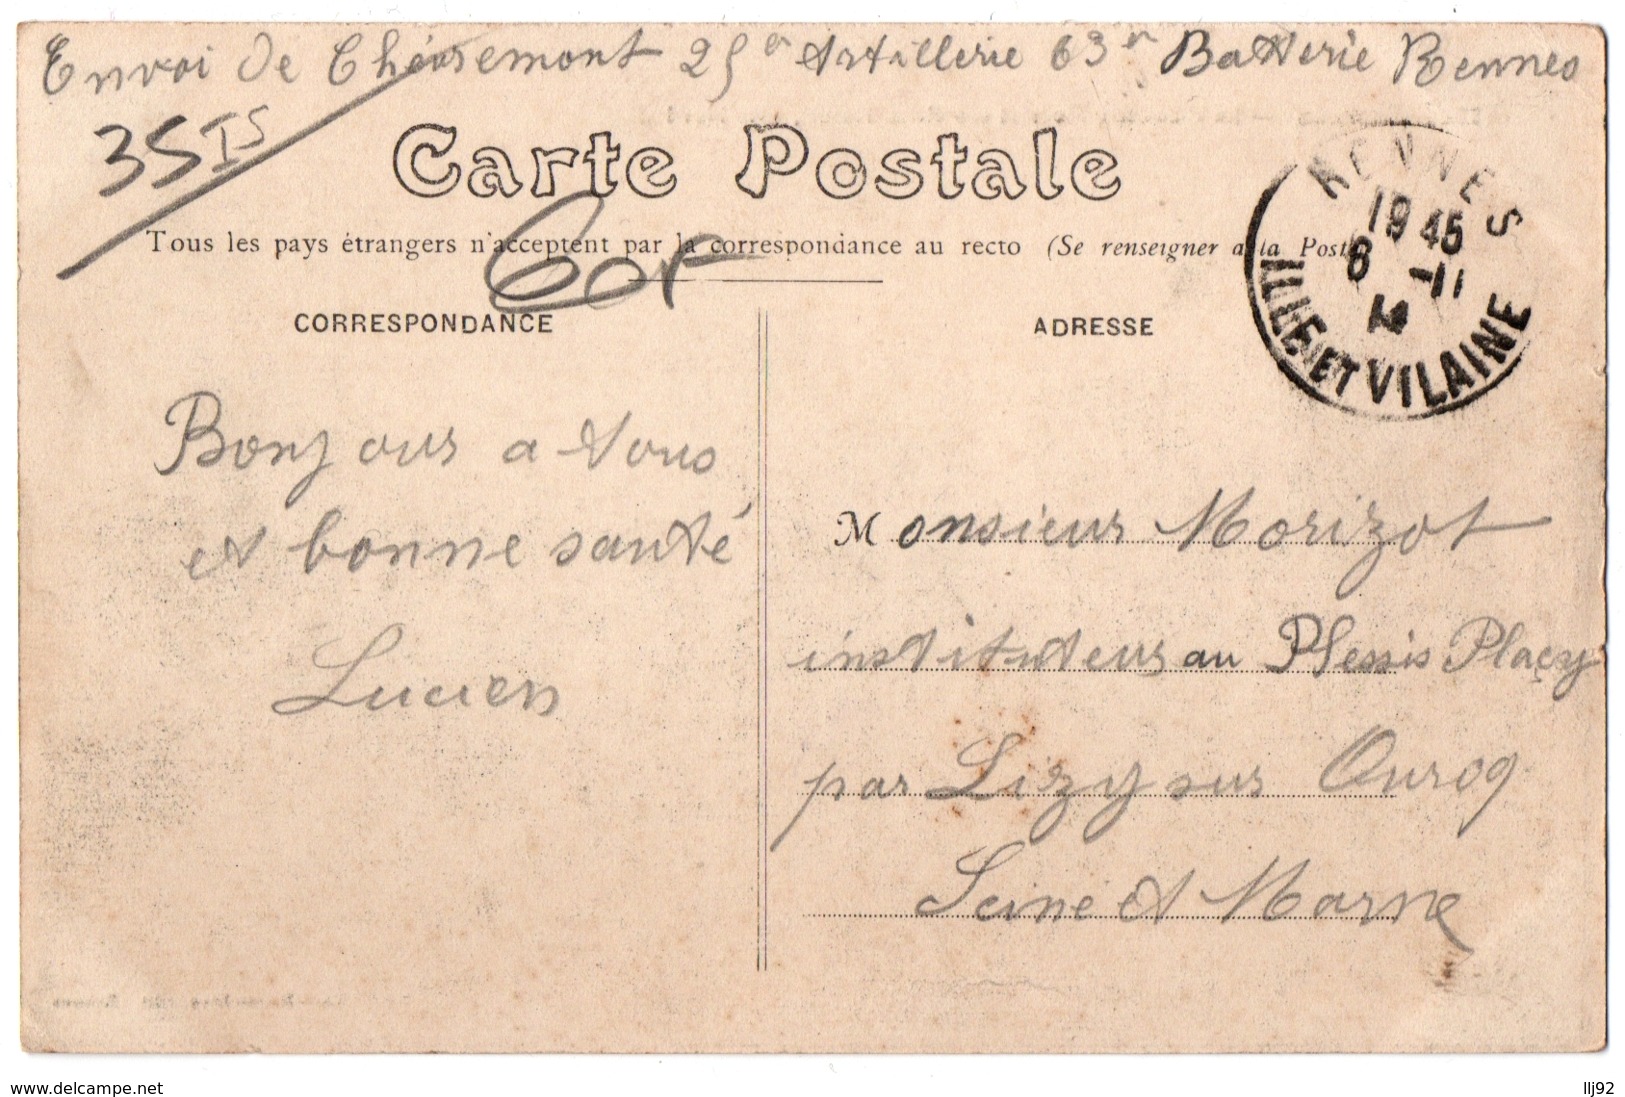 Envoi de Chévremont 25e Artillerie 63e Batterie Rennes
35 IS
Carte Postale
Tous les pays étrangers n'acceptent par la correspondance au recto (Se renseigner a la Poste
RENNES
19 45
8 -11
14
ILLE ET VILAINE
CORRESPONDANCE
ADRESSE
Bonjour a vous
et bonne santé
Lucien
Monsieur Morizot
instituteur au Plessis Plaçy
par Lizy sur Ourcq
Seine et Marne
www.delcampe.net
llj92